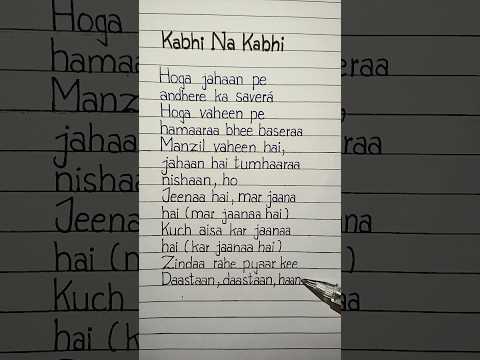 Kabhi Na Kabhi
Hoga jahaan pe
andhere ka saverá
Hoga vaheen pe
hamaaraa bhee baseraa
Manzil vaheen hai,
jahaan hai tumhaaraa
nishaan, ho
Jeenaa hai, mar jaana
hai (mar jaanaa hai)
Kuch aisa kar jaanaa
hai (kar jaanaa hai)
Zindaa rahe pyaar kee
Daastaan, daastaan, haan